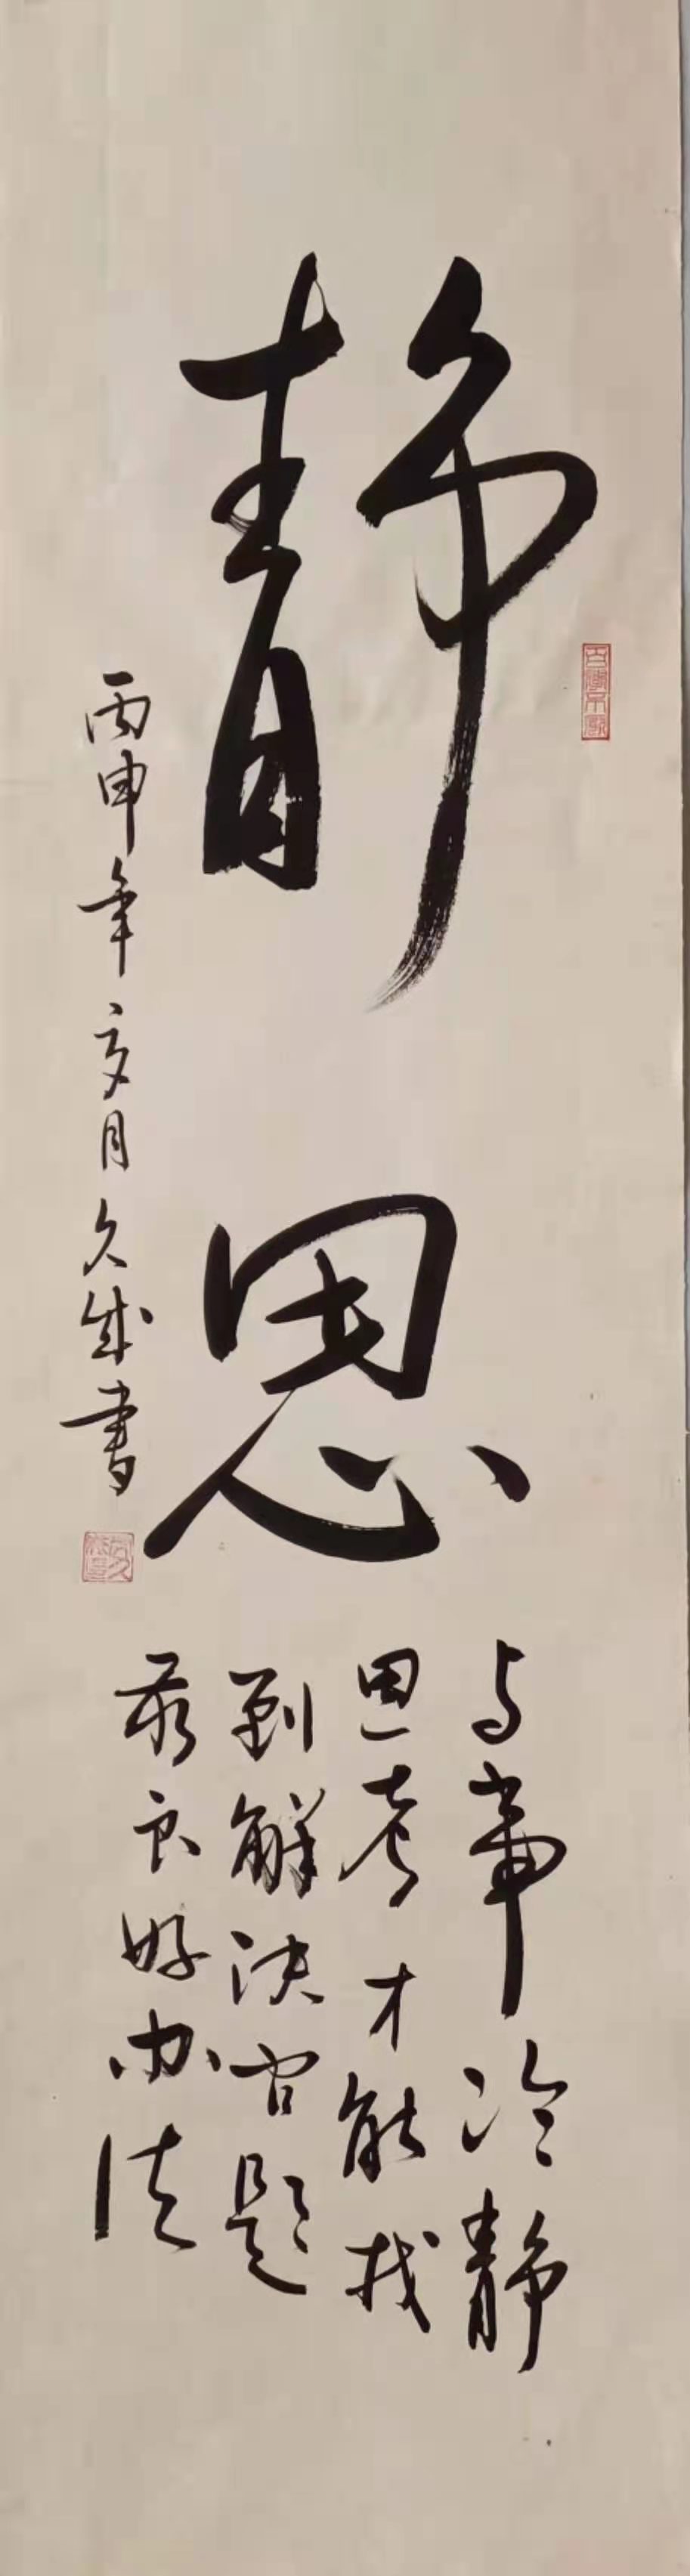 静思
与事冷静
思考才能找
到解决问题
最良好办法
丙申年亥月久成书